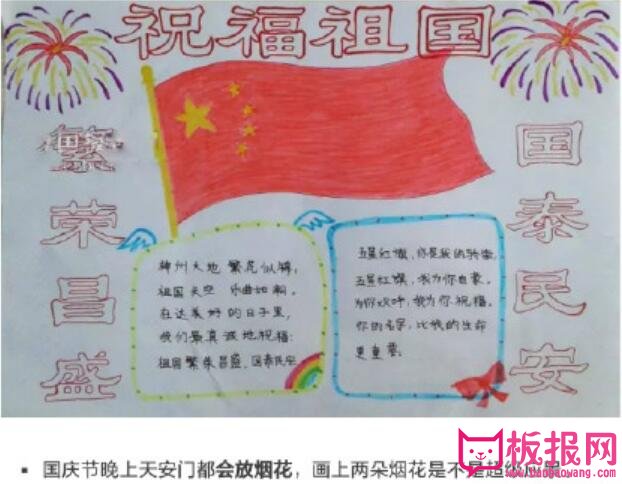 祝福祖国
繁荣昌盛
国泰民安
神州大地 繁花似锦,
祖国天空 乐曲如潮。
在这美好的日子里,
我们最真诚地祝福:
祖国繁荣昌盛、国泰民安
五星红旗,你是我的骄傲,
五星红旗,我为你自豪。
为你欢呼,我为你祝福,
你的名字,比我的生命
更重要。
▪ 国庆节晚上天安门都会放烟花,画上两朵烟花是不是超级应
板报网